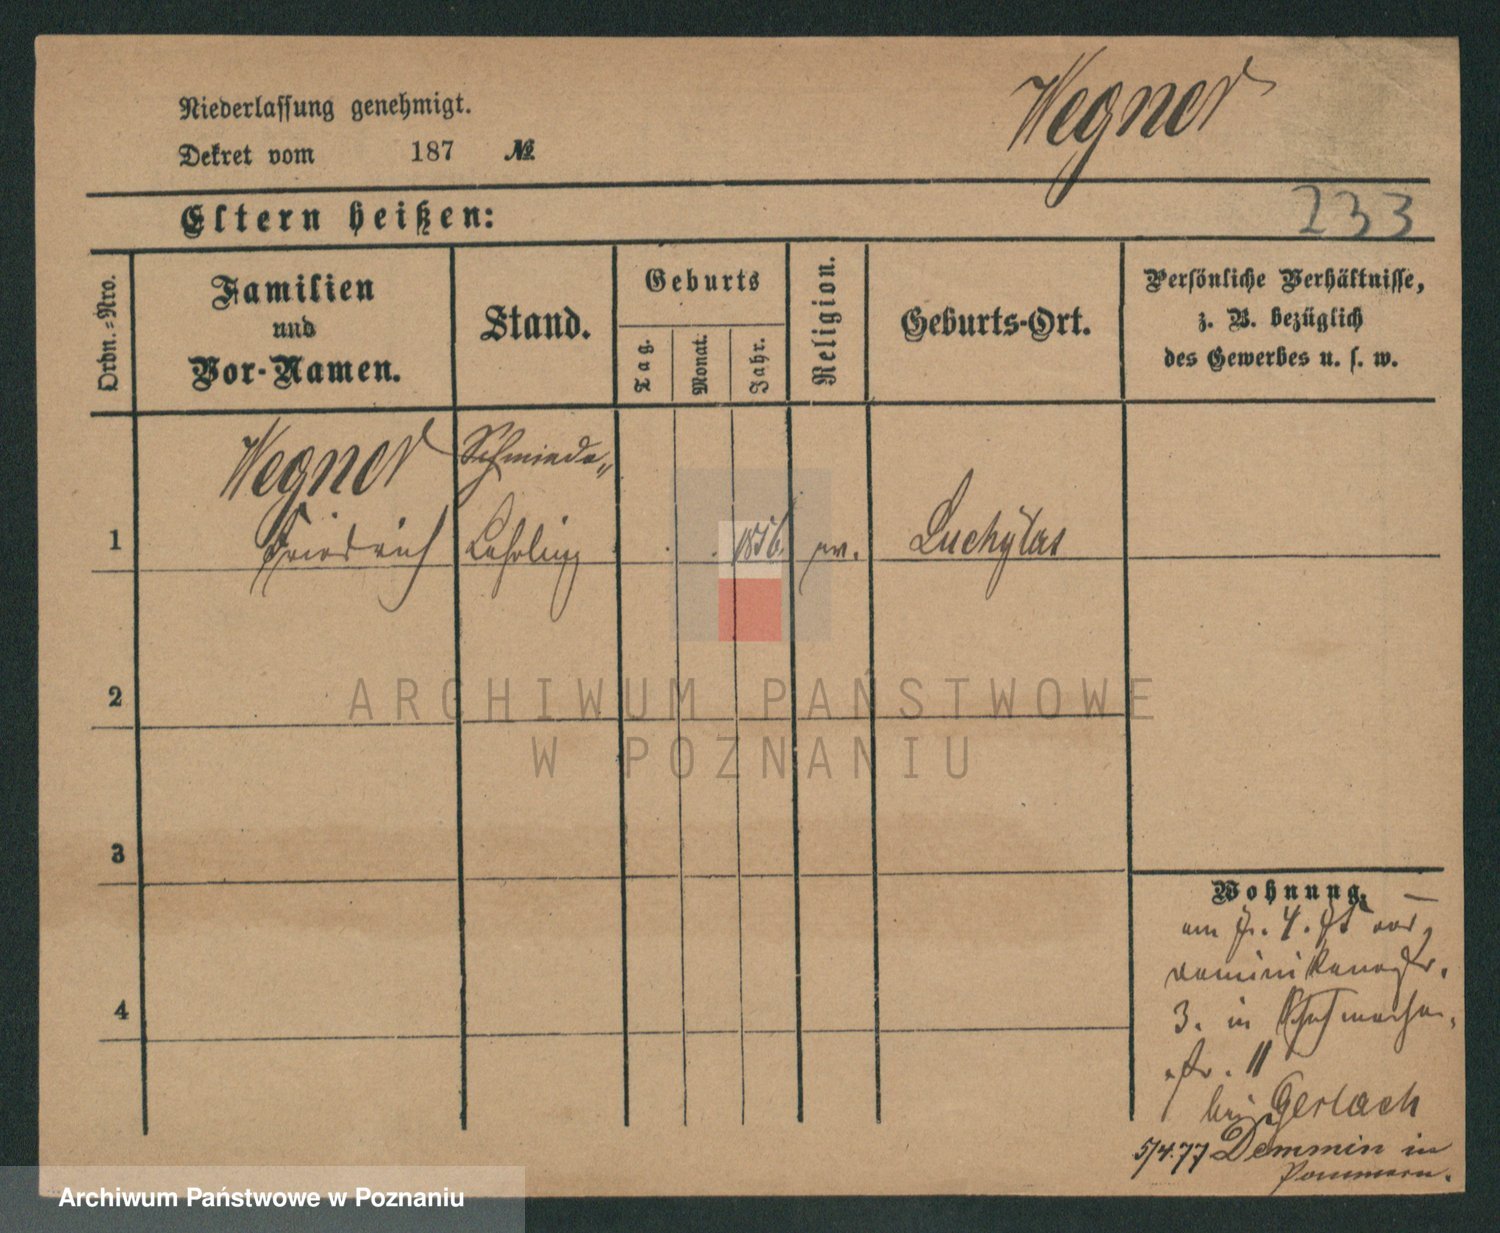 Wegner
Niederlassung genehmigt.
Dekret vom 187 №
233
Eltern heißen:
Ordn.=Nro.
Familien
und
Vor-Namen.
Stand.
Geburts
Tag.
Monat.
Jahr.
Religion.
Geburts-Ort.
Persönliche Verhältnisse,
z. B. bezüglich
des Gewerbes u. s. w.
1
Wegner
Friedrich
Schmiede
Lehrling
ev.
2
3
4
Wohnung.
am 4.
Dominikanerstr.
3. in Schuhmacher
str. 11
bei Gerlach
5/4.77 Demmin in
Pommern.
ARCHIWUM PAŃSTWOWE
W POZNANIU
Archiwum Państwowe w Poznaniu